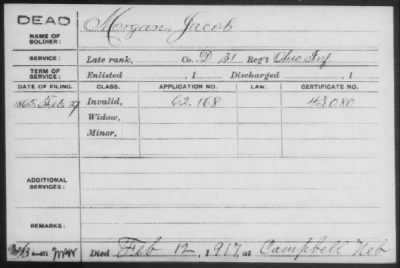 DEAD
NAME OF SOLDIER: Morgan, Jacob
SERVICE: Late rank, Co. D 31 Reg't Ohio Inf
TERM OF SERVICE: Enlisted , 1 Discharged , 1
DATE OF FILING. CLASS. APPLICATION NO. LAW. CERTIFICATE NO.
1865 Feb 27 Invalid, 62.168 43080
Widow,
Minor,
ADDITIONAL SERVICES:
REMARKS:
Died Feb 12, 1917, at Campbell Neb